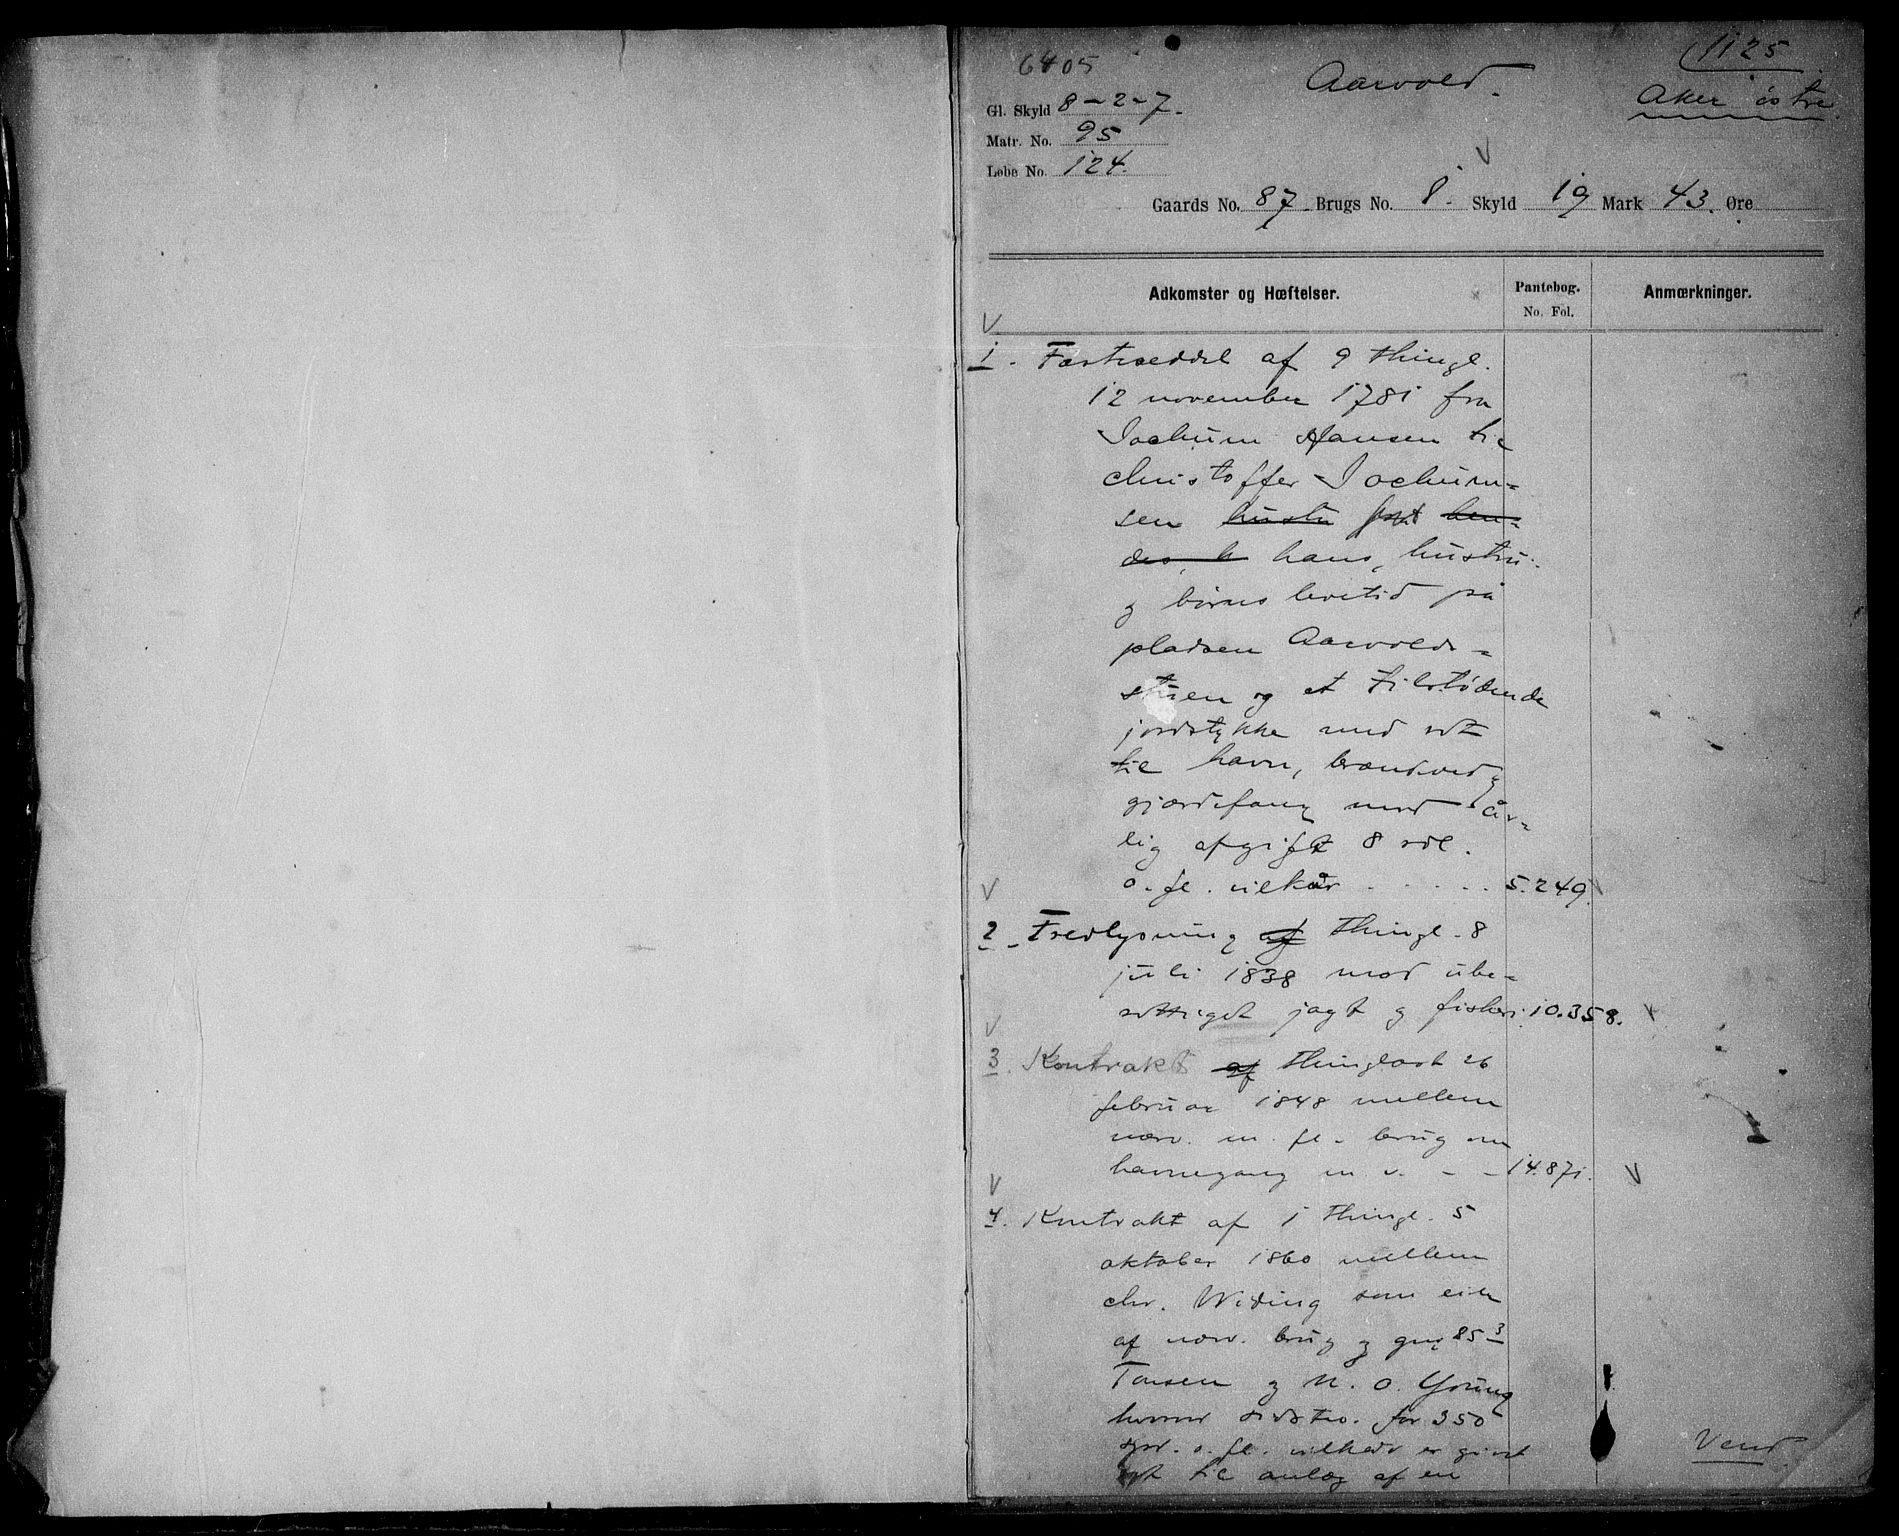 6405
1125
Aarvold.
Aker östre.
Gl. Skyld 8-2-7.
Matr. No. 95
Løbe No. 124.
Gaards No. 87. Brugs No. 1. Skyld 19 Mark 43. Øre
Adkomster og Hæftelser.
Pantebog.
No. Fol.
Anmærkninger.
1. Fæsteseddel af 9 thingl.
12 november 1781 fra
Jochum Hansen til
Christoffer Jochum-
sen hustru hen-
des h hans, hustru
og børns levetid på
pladsen Aarvolds-
stuen og et tilstødende
jordstykke med ret
til havn, brændeved og
gjærdefang mod år-
lig afgift 8 rdl.
o. fl. vilkår . . . . . 5.249.
2. Fredlysning af thingl. 8
juli 1838 mod ube-
rettiget jagt og fiskeri. 10.358.
3. Kontrakt af thinglæst 26
februar 1848 mellem
nærv. m. fl. brug om
havnegang m v. - - 14.871.
4. Kontrakt af 1 thingl. 5
oktober 1860 mellem
Chr. Widing som eier
af nærv. brug og gno 85 3
Tonsen og N. O. Young
hvorved sidstn. for 350
spd. o. fl. vilkår er givet
ret til anlæg af en
Vend